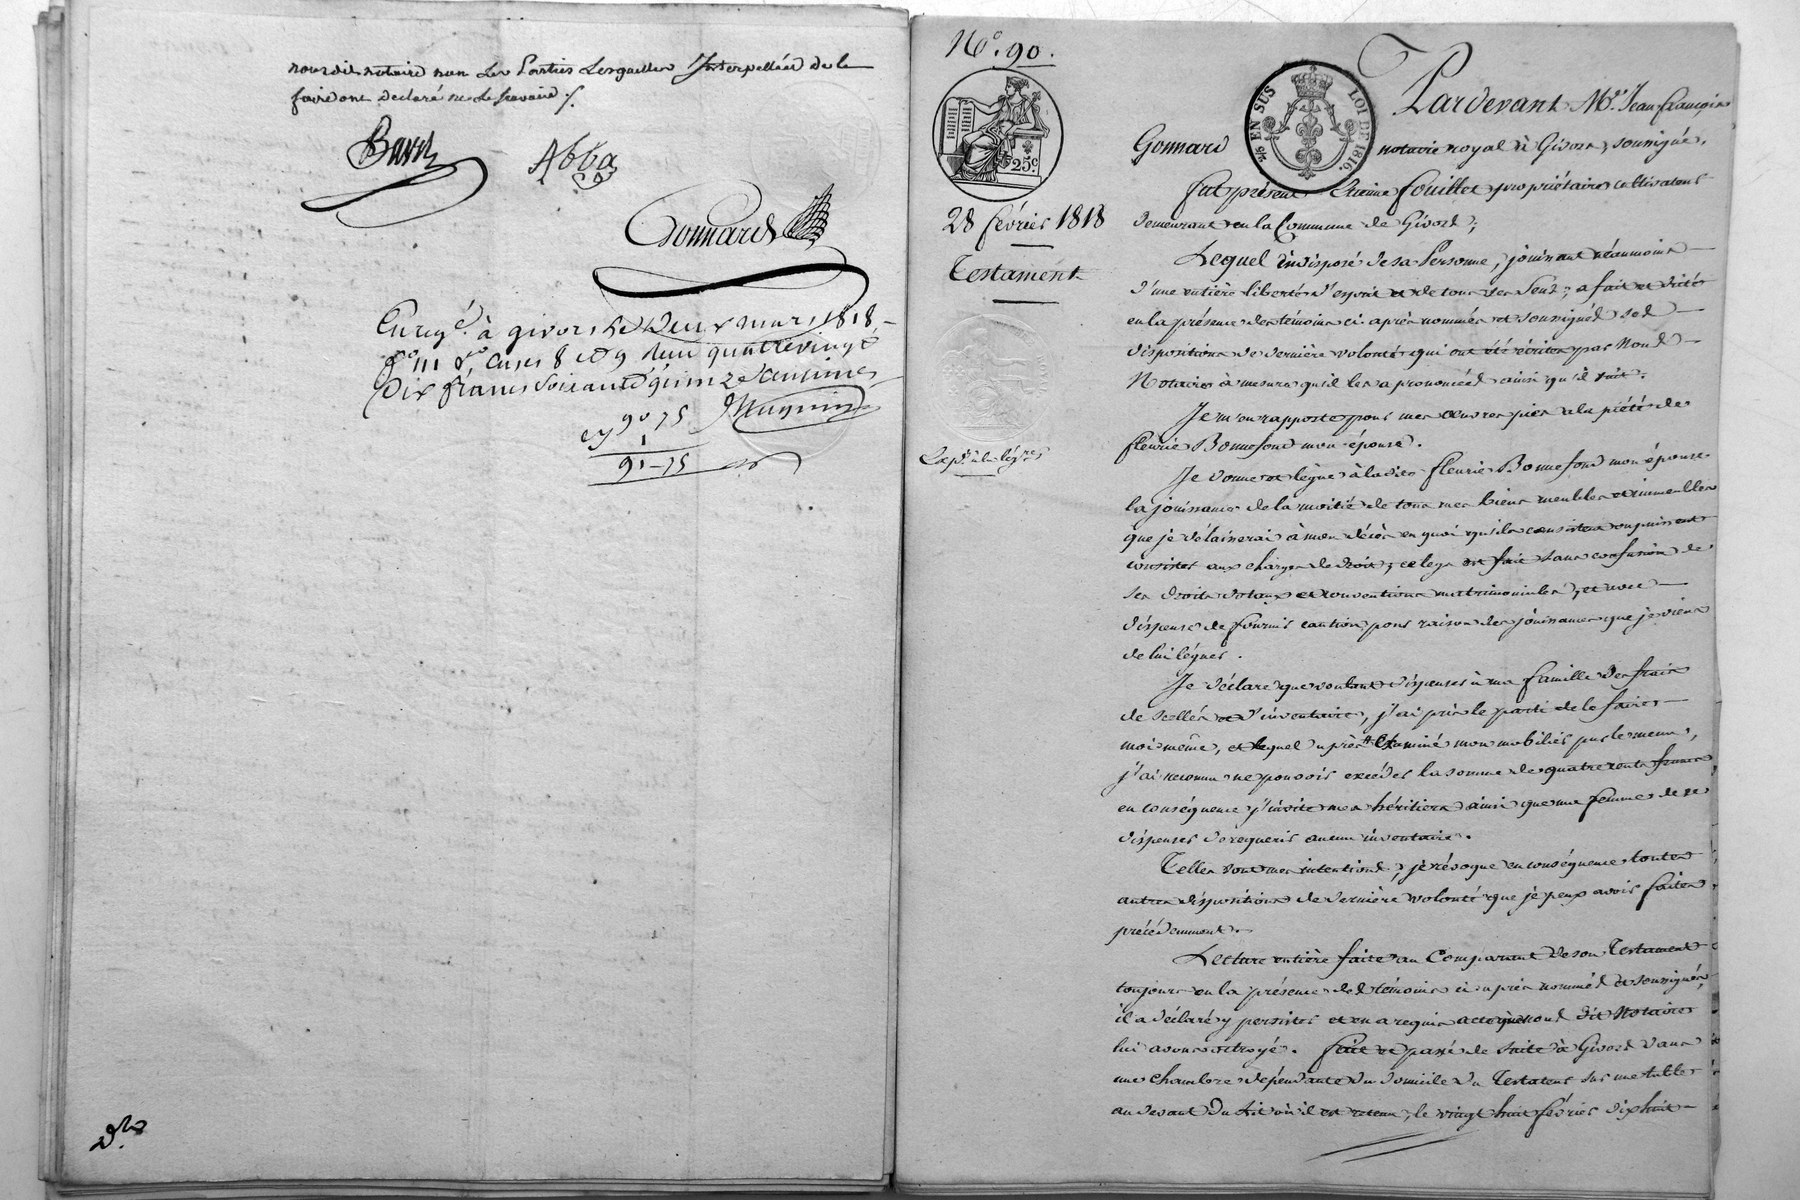 nousdit notaire non les Parties lesquelles Interpellées de le
faire ont declaré ne le scavoir ./.
Abba
Gonnard
Enreg.é à givors le deux mars 1818,
f.o 111 r.o, cases 8 et 9 reçu quatrevingt
Dix francs soixante quinze centimes
cy 90-75
1
91-75
N.o 90.
25 c.
28 février 1818
Testament
25 EN SUS LOI DE 1816.
Pardevant M.e Jean françois
Gonnard notaire royal à Givors, soussigné,
fut présent Etienne fouillet propriétaire cultivateur
demeurant en la Commune de Givors;
Lequel indisposé de sa Personne, jouissant néanmoins
d'une entière liberté d'esprit et de tous ses sens; a fait et dicté
en la présence des témoins ci après nommés et soussignés ses
dispositions de dernière volonté qui ont été écrites par Nous
Notaire à mesure qu'il les a prononcées ainsi qu'il suit.
Je m'en rapporte pour mes œuvres pies à la piété de
fleurie Bonnefond mon épouse.
Je donne et lègue à la dite fleurie Bonnefond mon épouse
la jouissance de la moitié de tous mes biens meubles et immeubles
que je délaisserai à mon décès en quoi qu'ils consistent ou puissent
consister aux charges de droit; ce legs est fait sans confusion de
ses droits dotaux et conventions matrimoniales, et avec
dispense de fournir caution pour raison des jouissances que je viens
de lui léguer.
Je déclare que voulant dispenser à ma famille des frais
de scellés et d'inventaire, j'ai pris le parti de le faire
moi même, et lequel après examiné mon mobilier par le menu,
j'ai reconnu ne pouvoir excéder la somme de quatre cents francs
en conséquence j'invite mes héritiers ainsi que ma femme de se
dispenser de requérir aucun inventaire.
Telles sont mes intentions, je révoque en conséquence toutes
autres dispositions de dernière volonté que je peux avoir faites
précédemment.
Lecture entière faite au Comparant de son Testament
toujours en la présence des témoins ci après nommés et soussignés,
il a déclaré y persister et en a requis acte que nous dit Notaire
lui avons octroyé. fait et passé de suite à Givors dans
une chambre dépendante du domicile du Testateur sur une table
au devant du lit où il est retenu, le vingt huit février dix huit